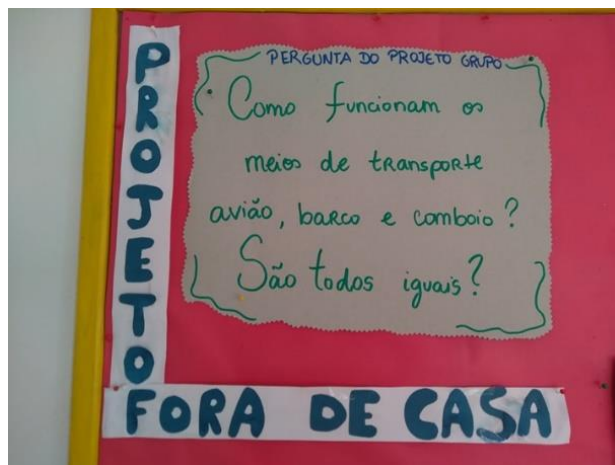 PROJETO
PERGUNTA DO PROJETO GRUPO
Como funcionam os
meios de transporte
avião, barco e comboio?
São todos iguais?
FORA DE CASA